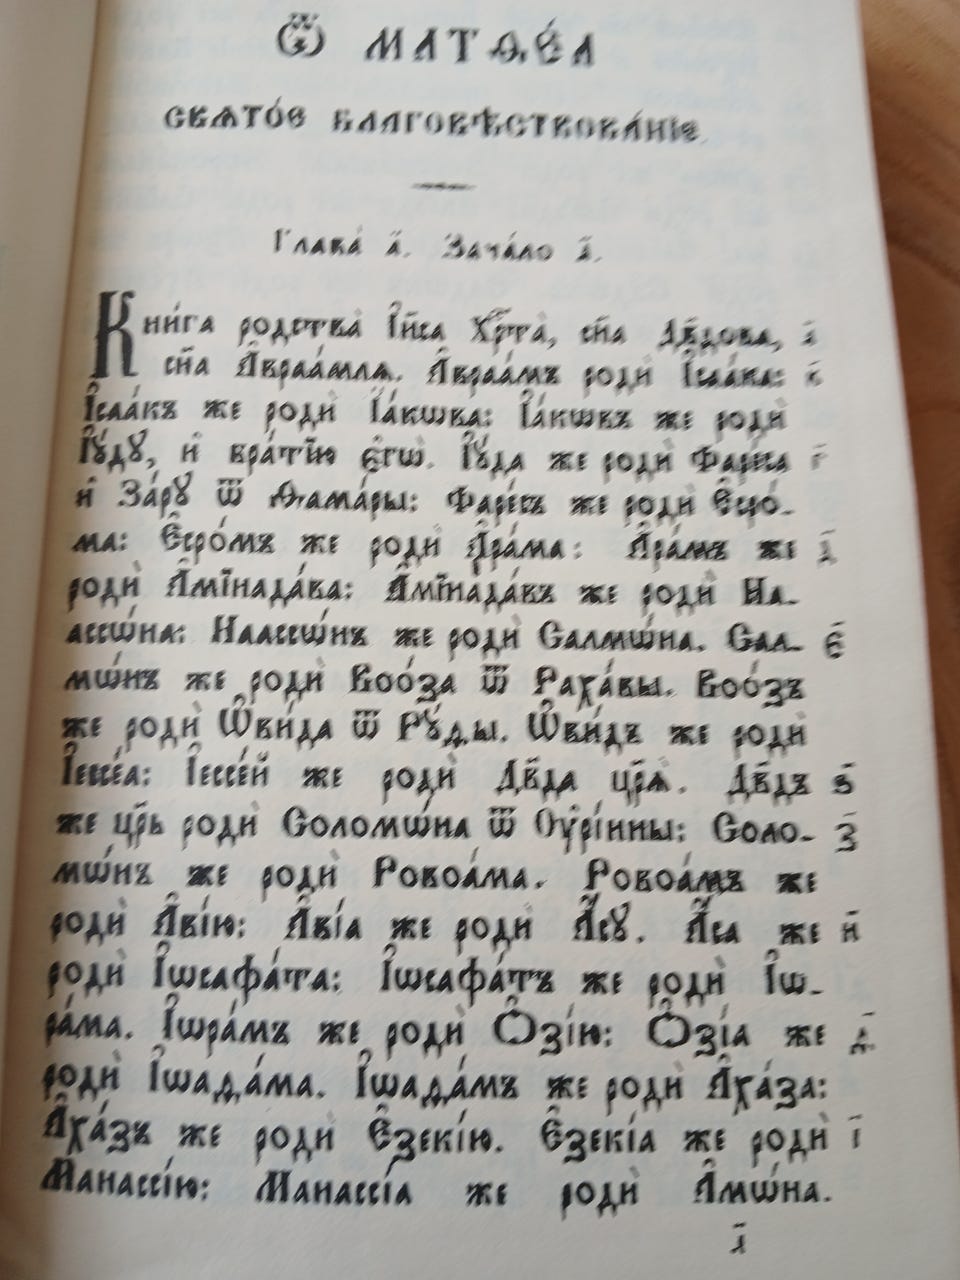 Ѿ МАТѲЕ́А
СВѦТО́Е БЛАГОВѢСТВОВА́НІЕ.
Глава̀ а҃. Зача́ло а҃.
Кни́га родства̀ І҆и҃са Хрⷭ҇та̀, сн҃а Дв҃дова, а҃
сн҃а А҆враа́млѧ. А҆враа́мъ родѝ І҆саа́ка: в҃
І҆саа́къ же родѝ І҆а́кѡва: І҆а́кѡвъ же родѝ
І҆ꙋ́дꙋ, и҆ бра́тїю є҆гѡ̀. І҆ꙋ́да же родѝ Фаре́са г҃
и҆ За́рꙋ ѿ Ѳама́ры: Фаре́съ же родѝ Є҆сро́-
ма: Є҆сро́мъ же родѝ А҆ра́ма: А҆ра́мъ же д҃
родѝ А҆мїнада́ва: А҆мїнада́въ же родѝ На-
ассѡ́на: Наассѡ́нъ же родѝ Салмѡ́на. Сал- є҃
мѡ́нъ же родѝ Воо́за ѿ Раха́вы. Воо́зъ
же родѝ Ѡ҆ви́да ѿ Рꙋ́ды. Ѡ҆ви́дъ же родѝ
І҆ессе́а: І҆ессе́й же родѝ Дв҃да цр҃ѧ̀. Дв҃дъ ѕ҃
же цр҃ь родѝ Соломѡ́на ѿ Оу҆рі́ины: Соло- з҃
мѡ́нъ же родѝ Ровоа́ма. Ровоа́мъ же
родѝ А҆ві́ю: А҆ві́а же родѝ А҆́сꙋ. А҆́са же и҃
родѝ І҆ѡсафа́та: І҆ѡсафа́тъ же родѝ І҆ѡ-
ра́ма. І҆ѡра́мъ же родѝ Ѻ҆зі́ю: Ѻ҆зі́а же ѳ҃
родѝ І҆ѡада́ма. І҆ѡада́мъ же родѝ А҆ха́за:
А҆ха́зъ же родѝ Є҆зекі́ю. Є҆зекі́а же родѝ і҃
Манассі́ю: Манассі́а же родѝ А҆мѡ́на.
а҃